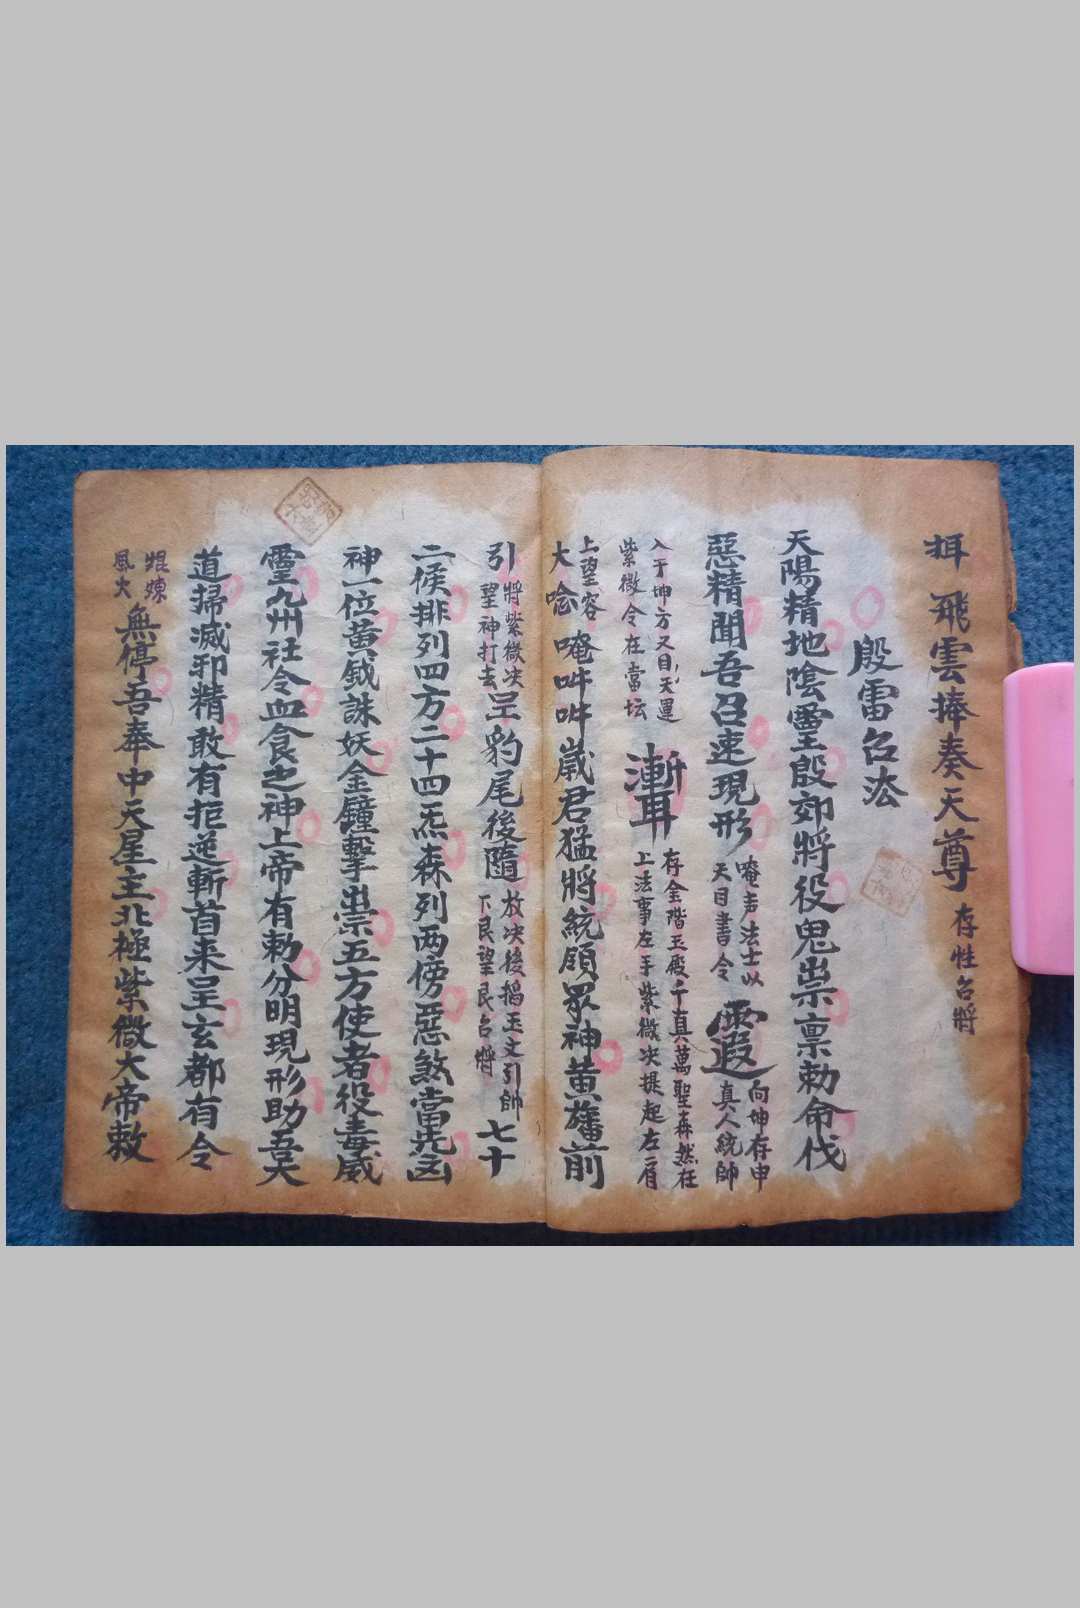 飛雲捧奏天尊 存性召將
殷雷召法
天陽精地陰靈殷郊將役鬼祟禀勅命伐
惡精聞吾召速現形 唵声法士以天目書令 霞 向坤存申真人統帥
入于坤方又目天運紫微令在當坛 存金階玉殿千真萬聖森然在上法事左手紫微决提起左肩
上望容大唸 唵吽吽歲君猛將統領眾神黄旛前
引 將紫微决望神打去 呈豹尾後隨 放决後搯玉文引帥下艮望艮召將 七十
二候排列四方二十四炁森列两傍惡煞當先凶
神一位黄鉞誅妖金鐘擊祟五方使者役毒威
靈九州社令血食之神上帝有勅分明現形助吾天
道掃滅邪精敢有拒逆斬首来呈玄都有令
風火 無停吾奉中天星主北極紫微大帝敕